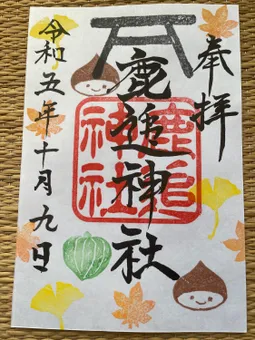 奉拝
鹿追神社
鹿追神社
令和五年十月九日